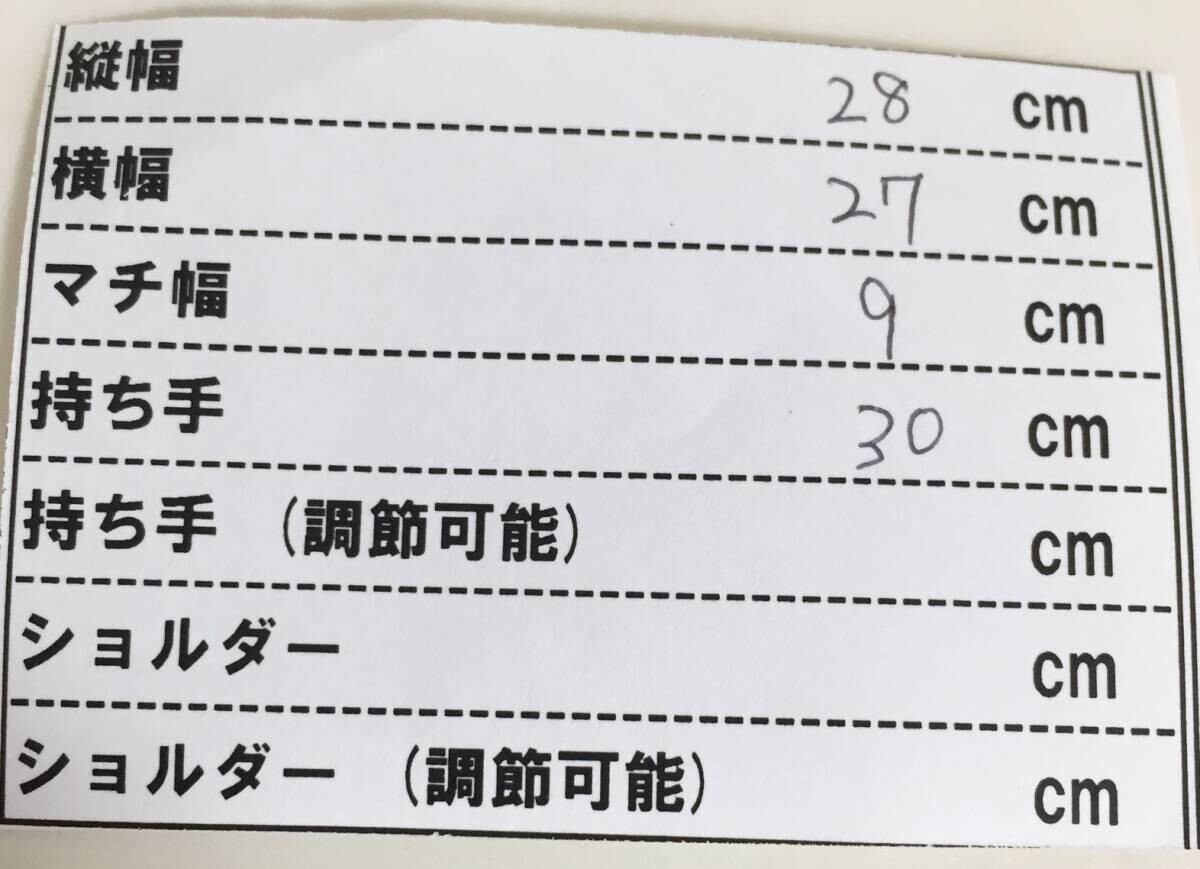 縦幅 28 cm
横幅 27 cm
マチ幅 9 cm
持ち手 30 cm
持ち手 (調節可能) cm
ショルダー cm
ショルダー (調節可能) cm